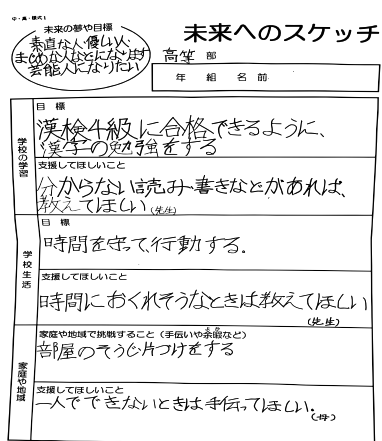 中・高・様式1
未来へのスケッチ
未来の夢や目標
素直な人・優しい人・
まじめな人などになります
芸能人になりたい
高等 部
年 組 名前
学校の学習
目標
漢検4級に合格できるように、
漢字の勉強をする
支援してほしいこと
分からない読み書きなどがあれば、
教えてほしい(先生)
学校生活
目標
時間を守って行動する.
支援してほしいこと
時間におくれそうなときは教えてほしい
(先生)
家庭や地域
家庭や地域で挑戦すること(手伝いや余暇など)
部屋のそうじ片づけをする
支援してほしいこと
一人でできないときは手伝ってほしい.
(母)